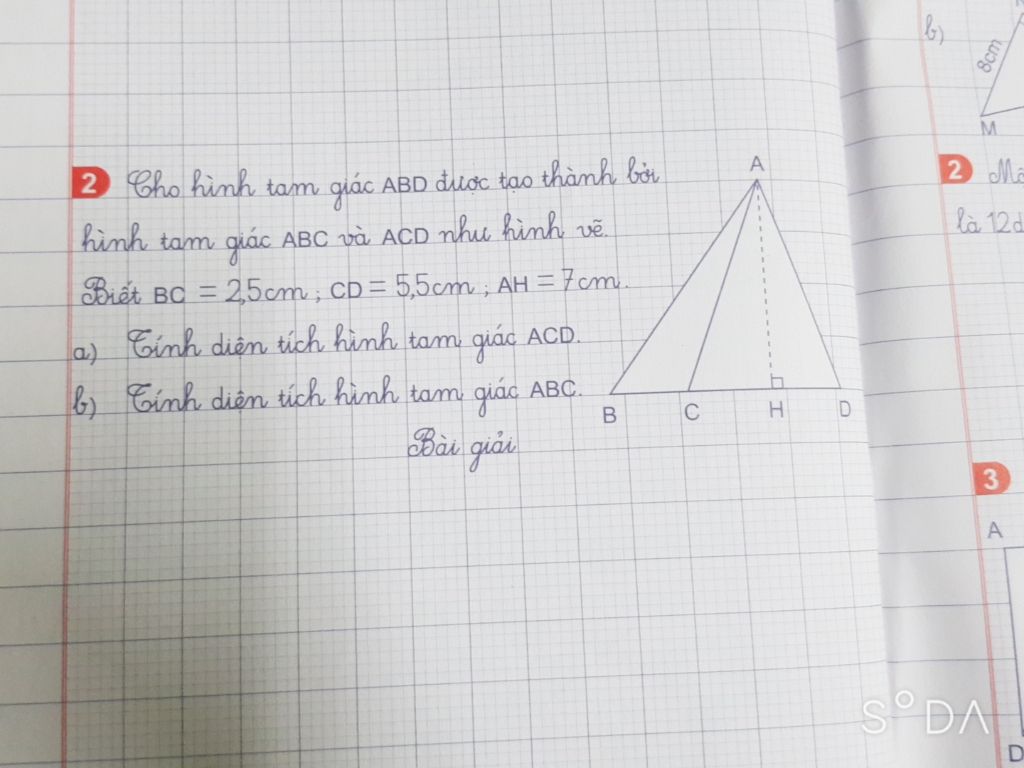 2 Cho hình tam giác ABD được tạo thành bởi
hình tam giác ABC và ACD như hình vẽ.
Biết BC = 2,5cm ; CD = 5,5cm ; AH = 7cm.
a) Tính diện tích hình tam giác ACD.
b) Tính diện tích hình tam giác ABC.
Bài giải
A
B C H D
b)
8cm
M
2
là 12d
3
A
D
SODA